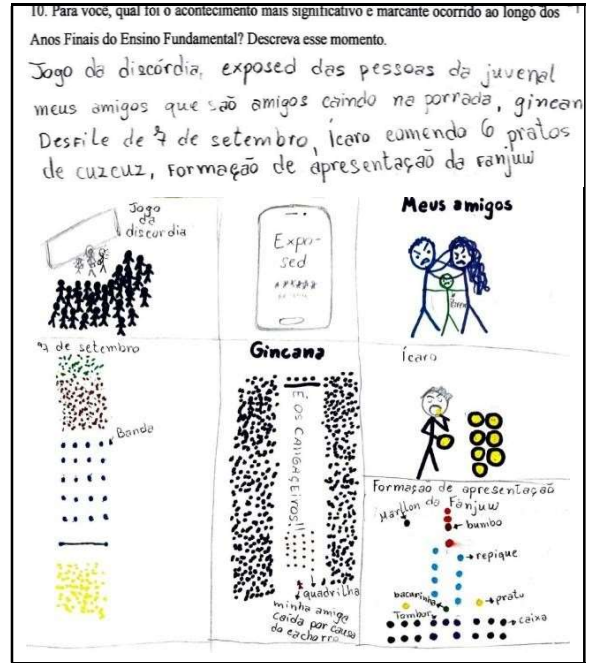 10. Para você, qual foi o acontecimento mais significativo e marcante ocorrido ao longo dos
Anos Finais do Ensino Fundamental? Descreva esse momento.
Jogo da discórdia, exposed das pessoas da juvenal
meus amigos que são amigos caindo na porrada, gincan
Desfile de 7 de setembro, Ícaro comendo 6 pratos
de cuzcuz, Formação de apresentação da Fanjuw
Jogo
da
discordia
Expo-
sed
Meus amigos
7 de setembro
Banda
Gincana
É OS CANGACEIROS!!
quadrilha
minha amiga
caída por causa
do cachorro
Ícaro
Formação de apresentação
da Fanjuw
Marllon
bumbo
repique
bacurinha
prato
Tambor
caixa